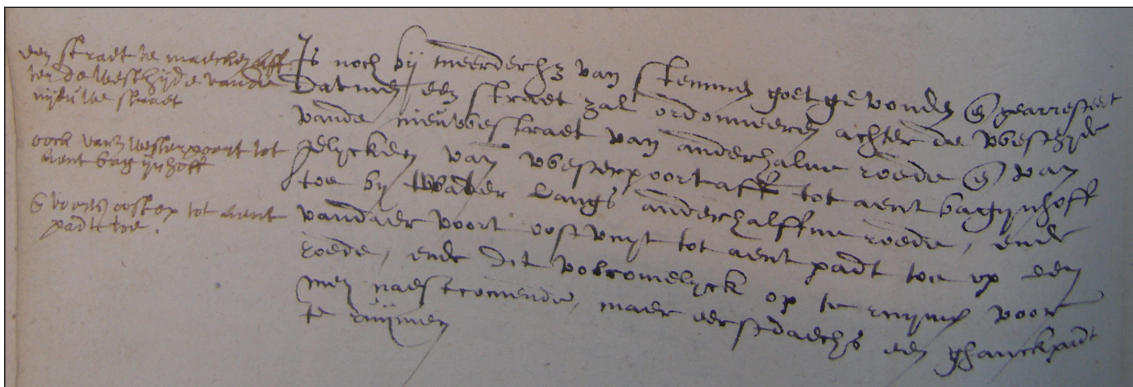 een straet te maecken aff
ter de westzijde vande
nijeuwe straet
oock van westerpoort tot
aent bagijnhoff
en voorts oost op tot aent
padt toe.
Is noch bij meerderheijt van stemmen goet gevonden en gearresteert
Datmen een straet zal ordonneeren achter de westzijde
vande nieuwestraet van anderhalve roede en van
gelycken van westerpoort aff tot aent bagijnhoff
toe bij twater langs anderhalffve roede, ende
vandaer voort oostuuijt tot aent padt toe op een
roede, ende dit volcomelyck op te ruijmen voor
meij naestcomende, maer eerstdaechs een ghanckpadt
te ruijmen